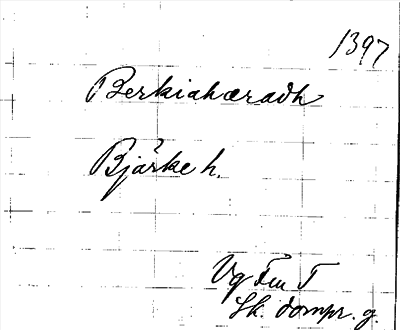 1397
Berkiahæradh
Bjärke h.
Vg Fru T
Sk. dompr. g.